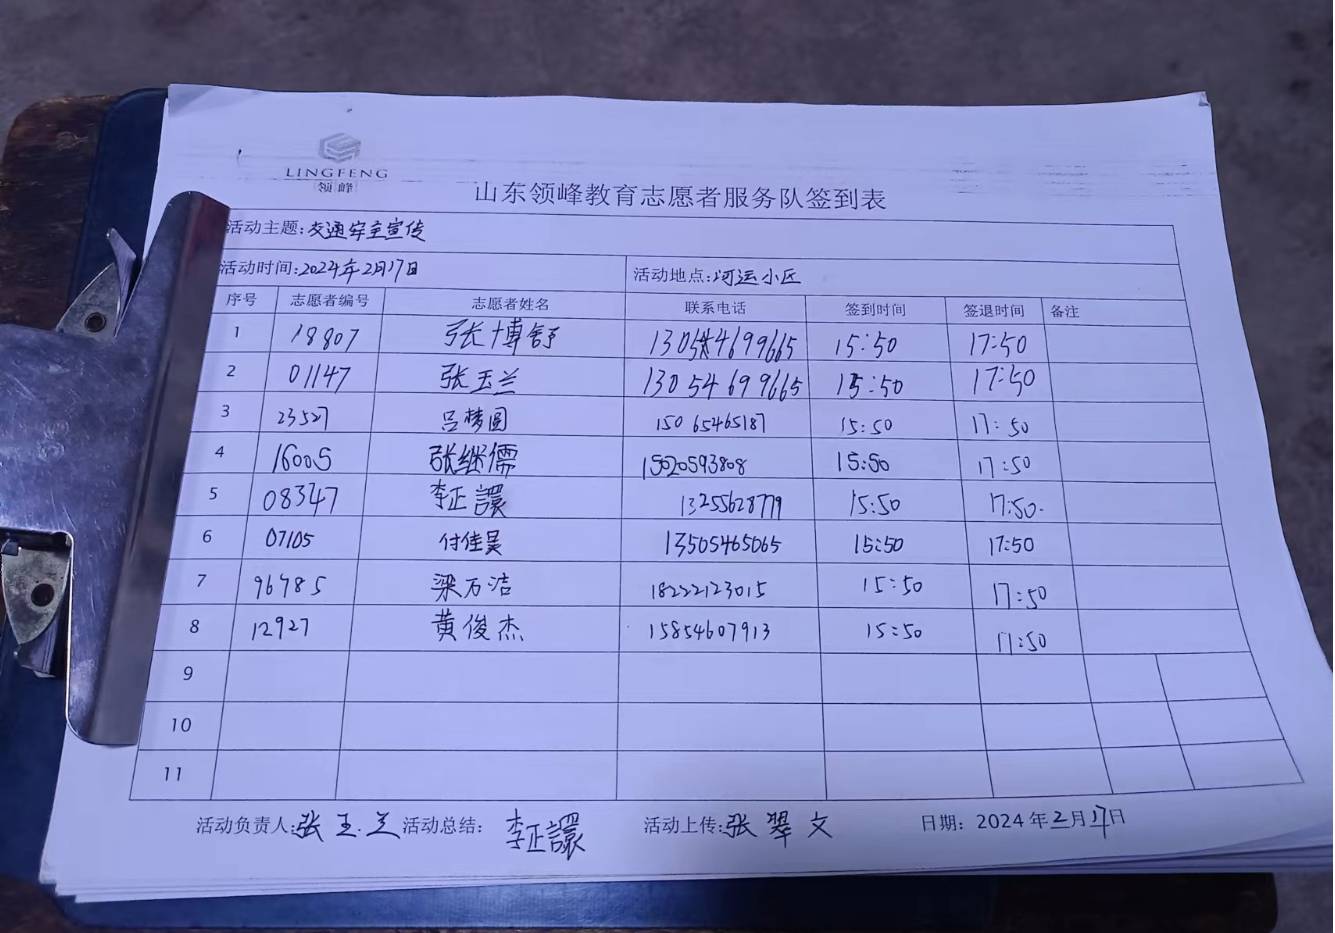 LINGFENG
领峰
山东领峰教育志愿者服务队签到表
活动主题:交通安全宣传
活动时间:2024年2月17日 活动地点:河运小区
序号 志愿者编号 志愿者姓名 联系电话 签到时间 签退时间 备注
1 18807 张博舒 13054699665 15:50 17:50
2 01147 张玉兰 13054699665 15:50 17:50
3 23527 吕梦圆 15065465187 15:50 17:50
4 16005 张继儒 15020593808 15:50 17:50
5 08347 李正譞 13255628779 15:50 17:50.
6 07105 付佳昊 13505465065 15:50 17:50
7 96985 梁万洁 18222123015 15:50 17:50
8 12927 黄俊杰 15854607913 15:50 17:50
9
10
11
活动负责人:张玉兰 活动总结: 李正譞 活动上传:张翠文 日期: 2024年2月17日